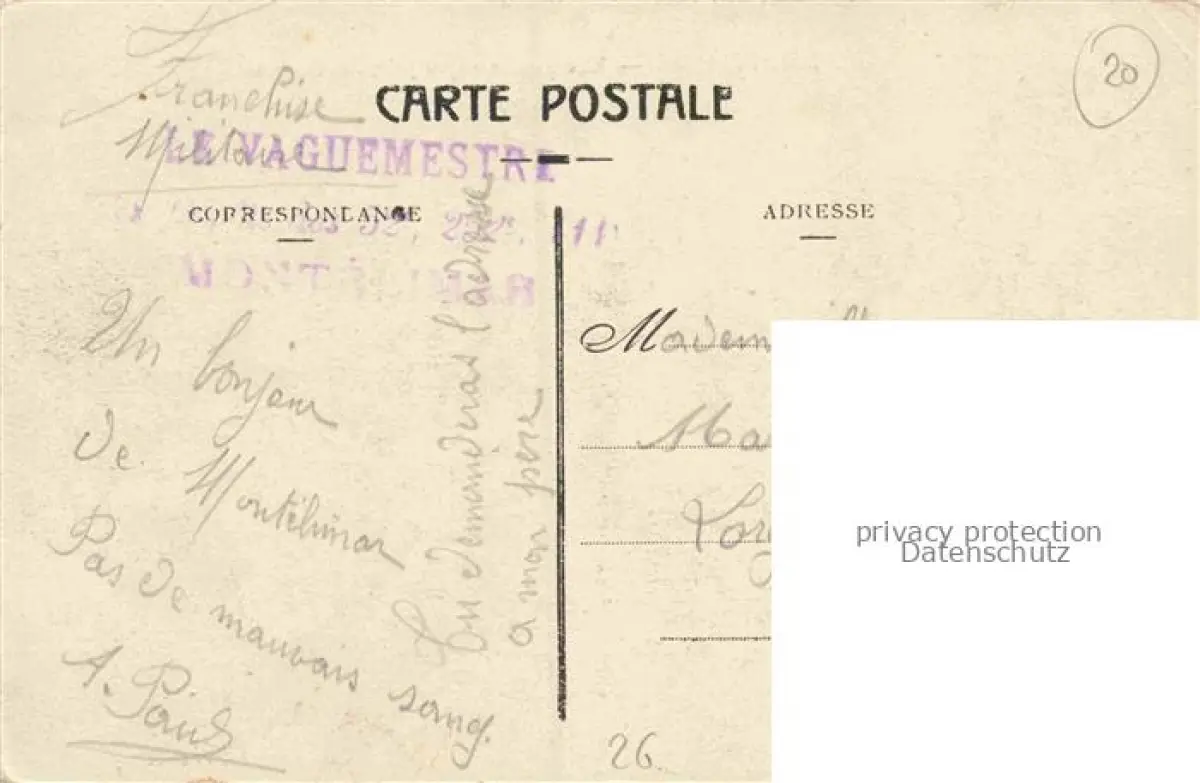 Franchise
Militaire
20
CARTE POSTALE
LE VAGUEMESTRE
CORRESPONDANCE
ADRESSE
MONTÉLIMAR
Un bonjour
de Montélimar
Pas de mauvais sang.
A.
Tu demanderas l'adresse
a mon pere
Madem
Ma
26
privacy protection
Datenschutz